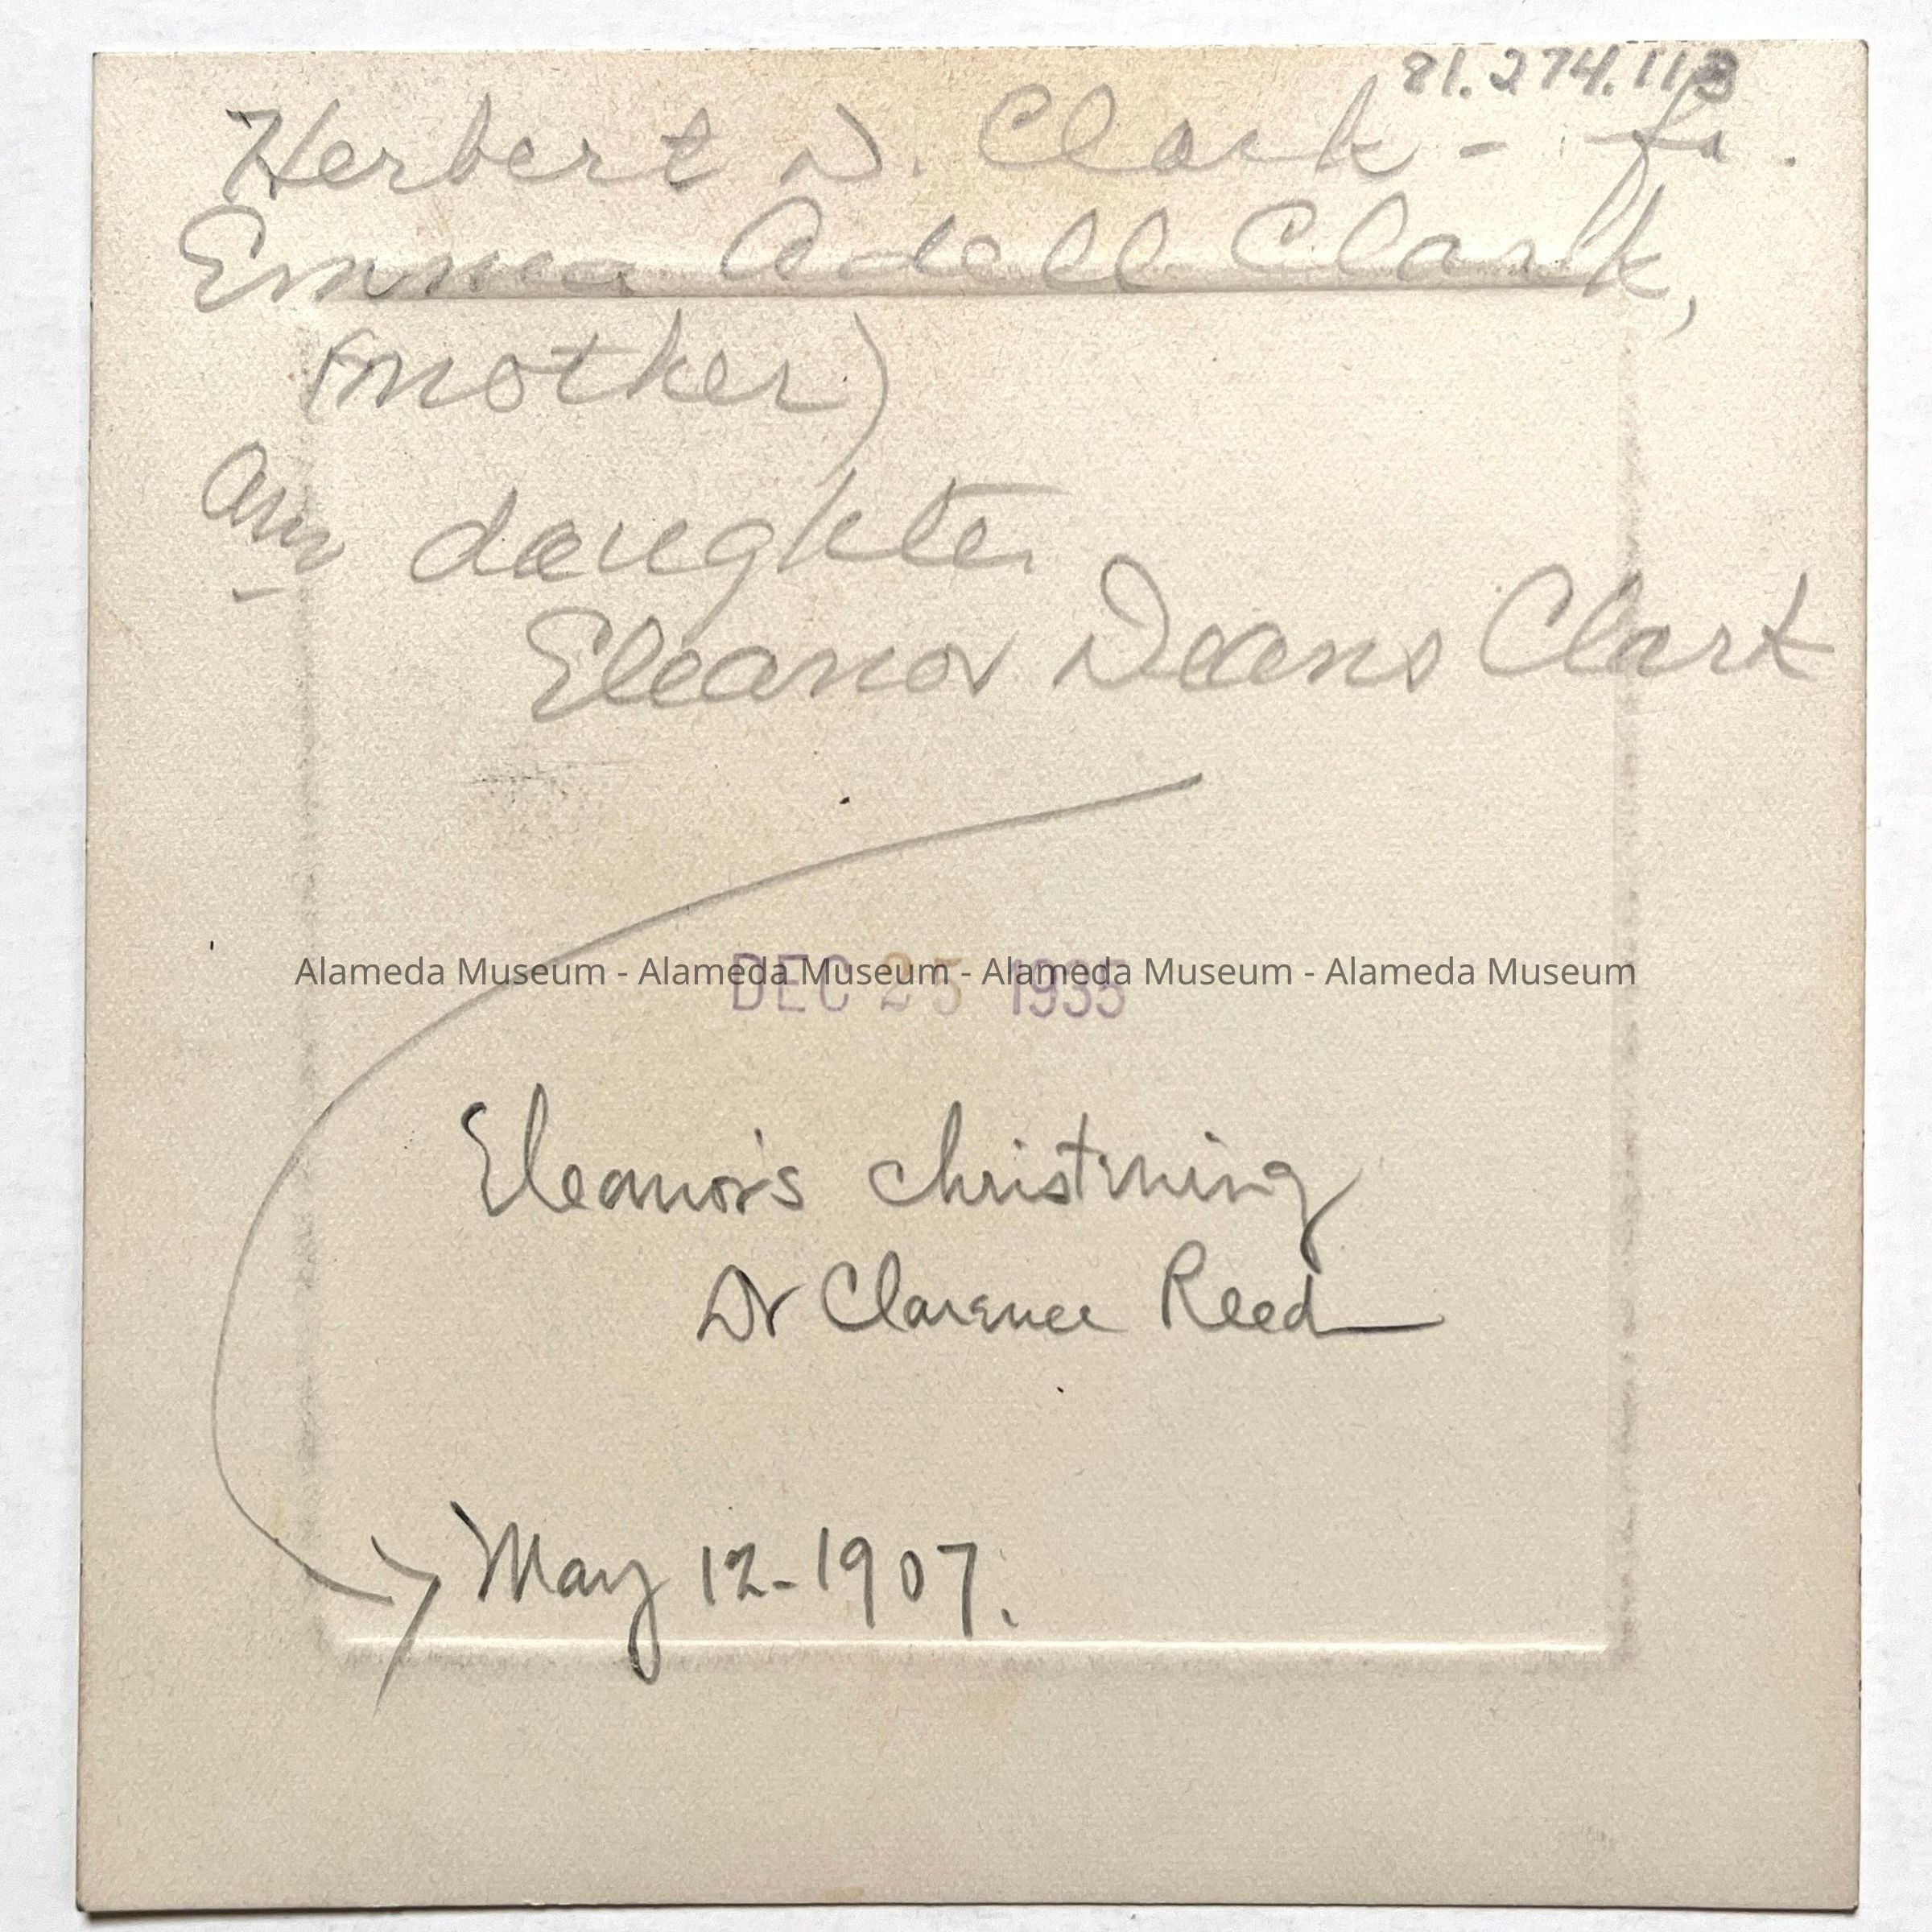 81.274.113
Herbert D. Clark - fa.
Emma Adell Clark,
(mother)
and daughter
Eleanor Deans Clark
Alameda Museum - Alameda Museum - Alameda Museum - Alameda Museum
DEC 25 1935
Eleanor's christning
Dr Clarence Reed
May 12-1907.